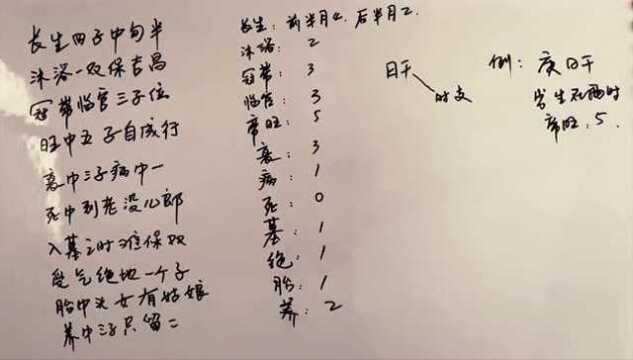 长生四子中旬半
沐浴一双保吉昌
冠带临官三子位
旺中五子自成行
衰中三子病中一
死中到老没儿郎
入墓之时难保双
受气绝地一个子
胎中头女有姑娘
养中三子只留二
长生：前半月4，后半月2.
沐浴：2
冠带：3
临官：3
帝旺：5
衰：3
病：1
死：0
墓：1
绝：1
胎：1
养：2
日干
时支
例：庚日干
生 酉时
帝旺，5.